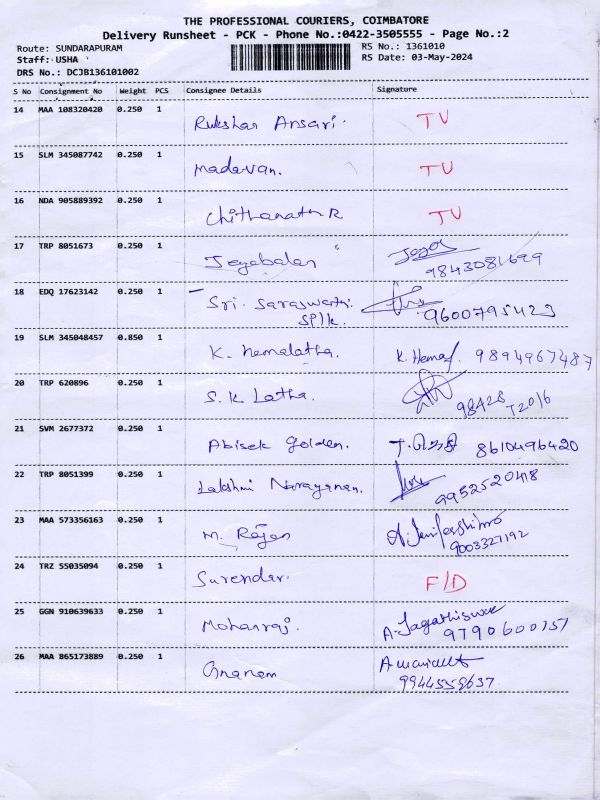 THE PROFESSIONAL COURIERS, COIMBATORE
Delivery Runsheet - PCK - Phone No.:0422-3505555 - Page No.:2
Route: SUNDARAPURAM RS No.: 1361010
Staff: USHA RS Date: 03-May-2024
DRS No.: DCJB136101002
S No Consignment No Weight PCS Consignee Details Signature
14 MAA 108320420 0.250 1 Rukshar Ansari. TU
15 SLM 345087742 0.250 1 Madavan. TU
16 NDA 905889392 0.250 1 Chithanath R TU
17 TRP 8051673 0.250 1 Jeyabalan
9843081699
18 EDQ 17623142 0.250 1 Sri. Saraswathi
9600795423
19 SLM 345048457 0.850 1 K. Hemalatha. K. Hema 9894967487
20 TRP 620896 0.250 1 S. K Latha.
98428 72016
21 SVM 2677372 0.250 1 Abisek Golden. 8610496420
22 TRP 8051399 0.250 1 Lakshmi Narayanan.
9952520418
23 MAA 573356163 0.250 1 M. Rajan
9003327192
24 TRZ 55035094 0.250 1 Surendar. F/D
25 GGN 910639633 0.250 1 Mohanraj. A. Jagathiswar
9790600757
26 MAA 865173889 0.250 1 Gnanam
9944559637.